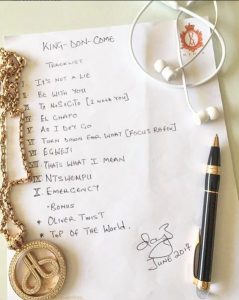 KING-DON-COME
TRACKLIST
I. IT'S NOT A LIE
II BE WITH YOU
III TE NECECITO [I NEED YOU]
IV EL CHAPO
V AS I DEY GO
VI TURN DOWN FOR WHAT [FOCUS REFIX]
VII EGWEJI
VIII THATS WHAT I MEAN
IX NTSWEMPU
X. EMERGENCY
-BONUS
* OLIVER TWIST
* TOP OF THE WORLD.
JUNE 2017